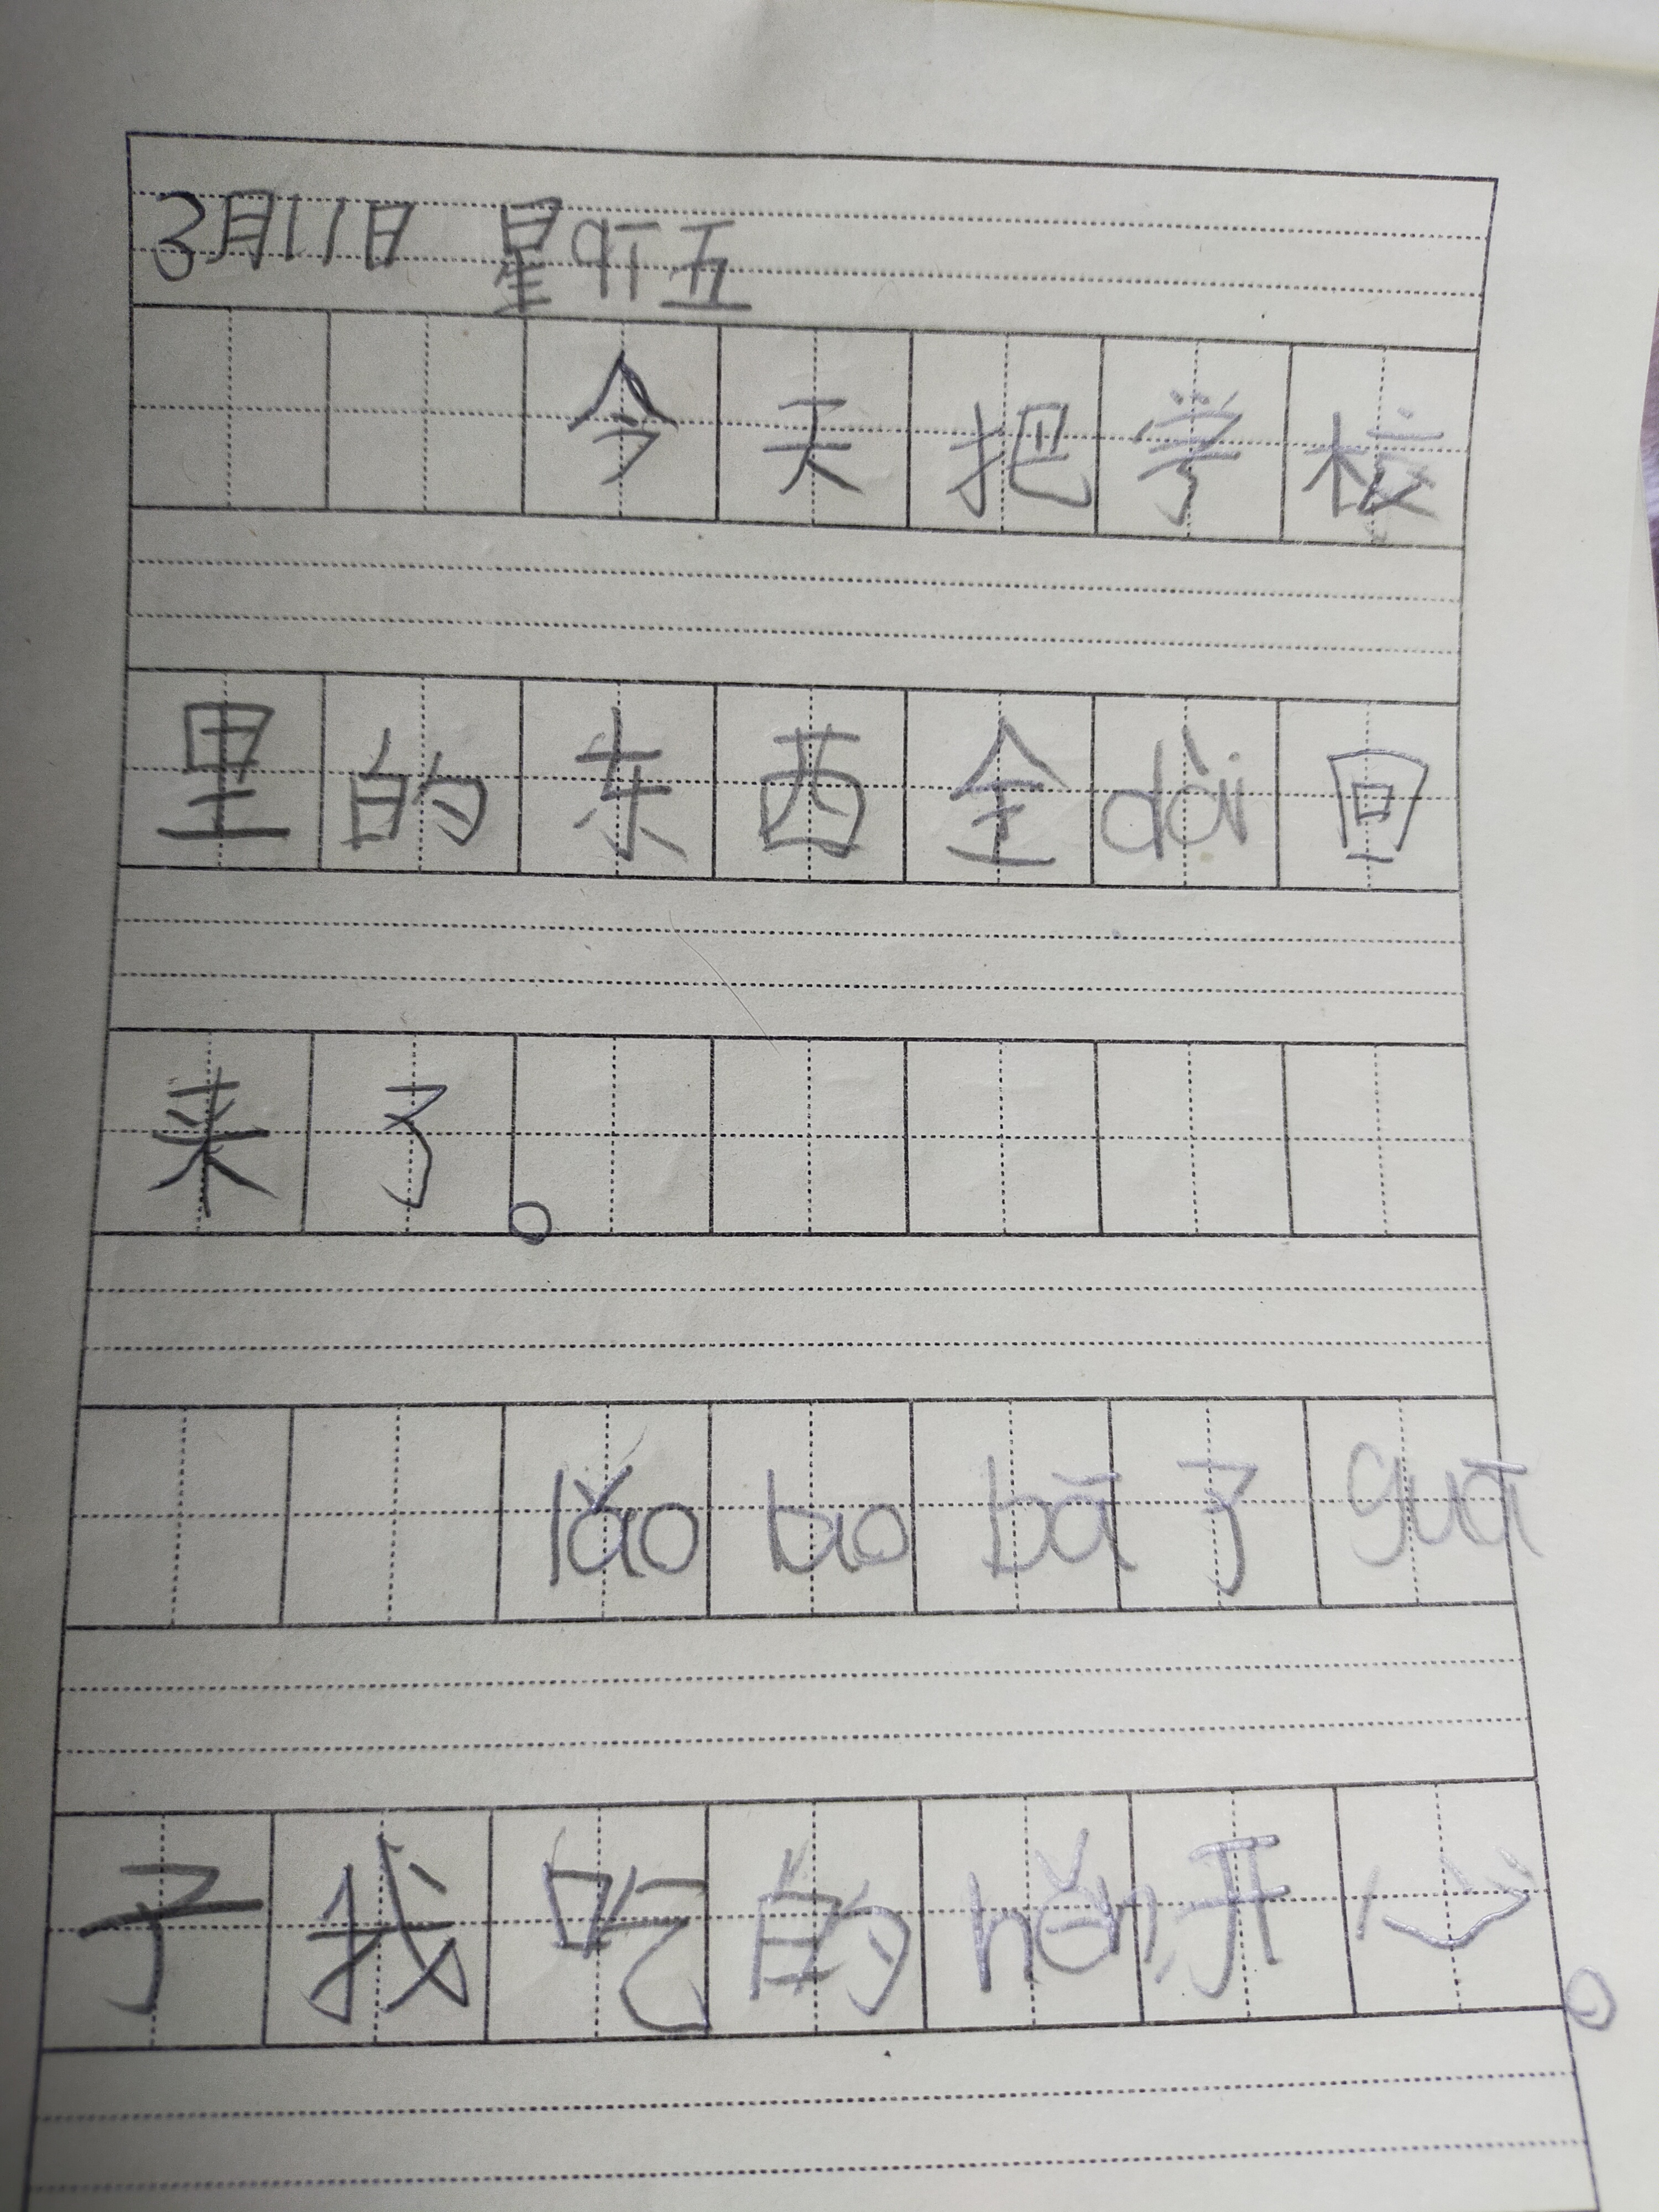 3月11日 星qī五
今天把学校
里的东西全dài回
来了。
lǎo bao bā了guā
子我吃的hěn开心。